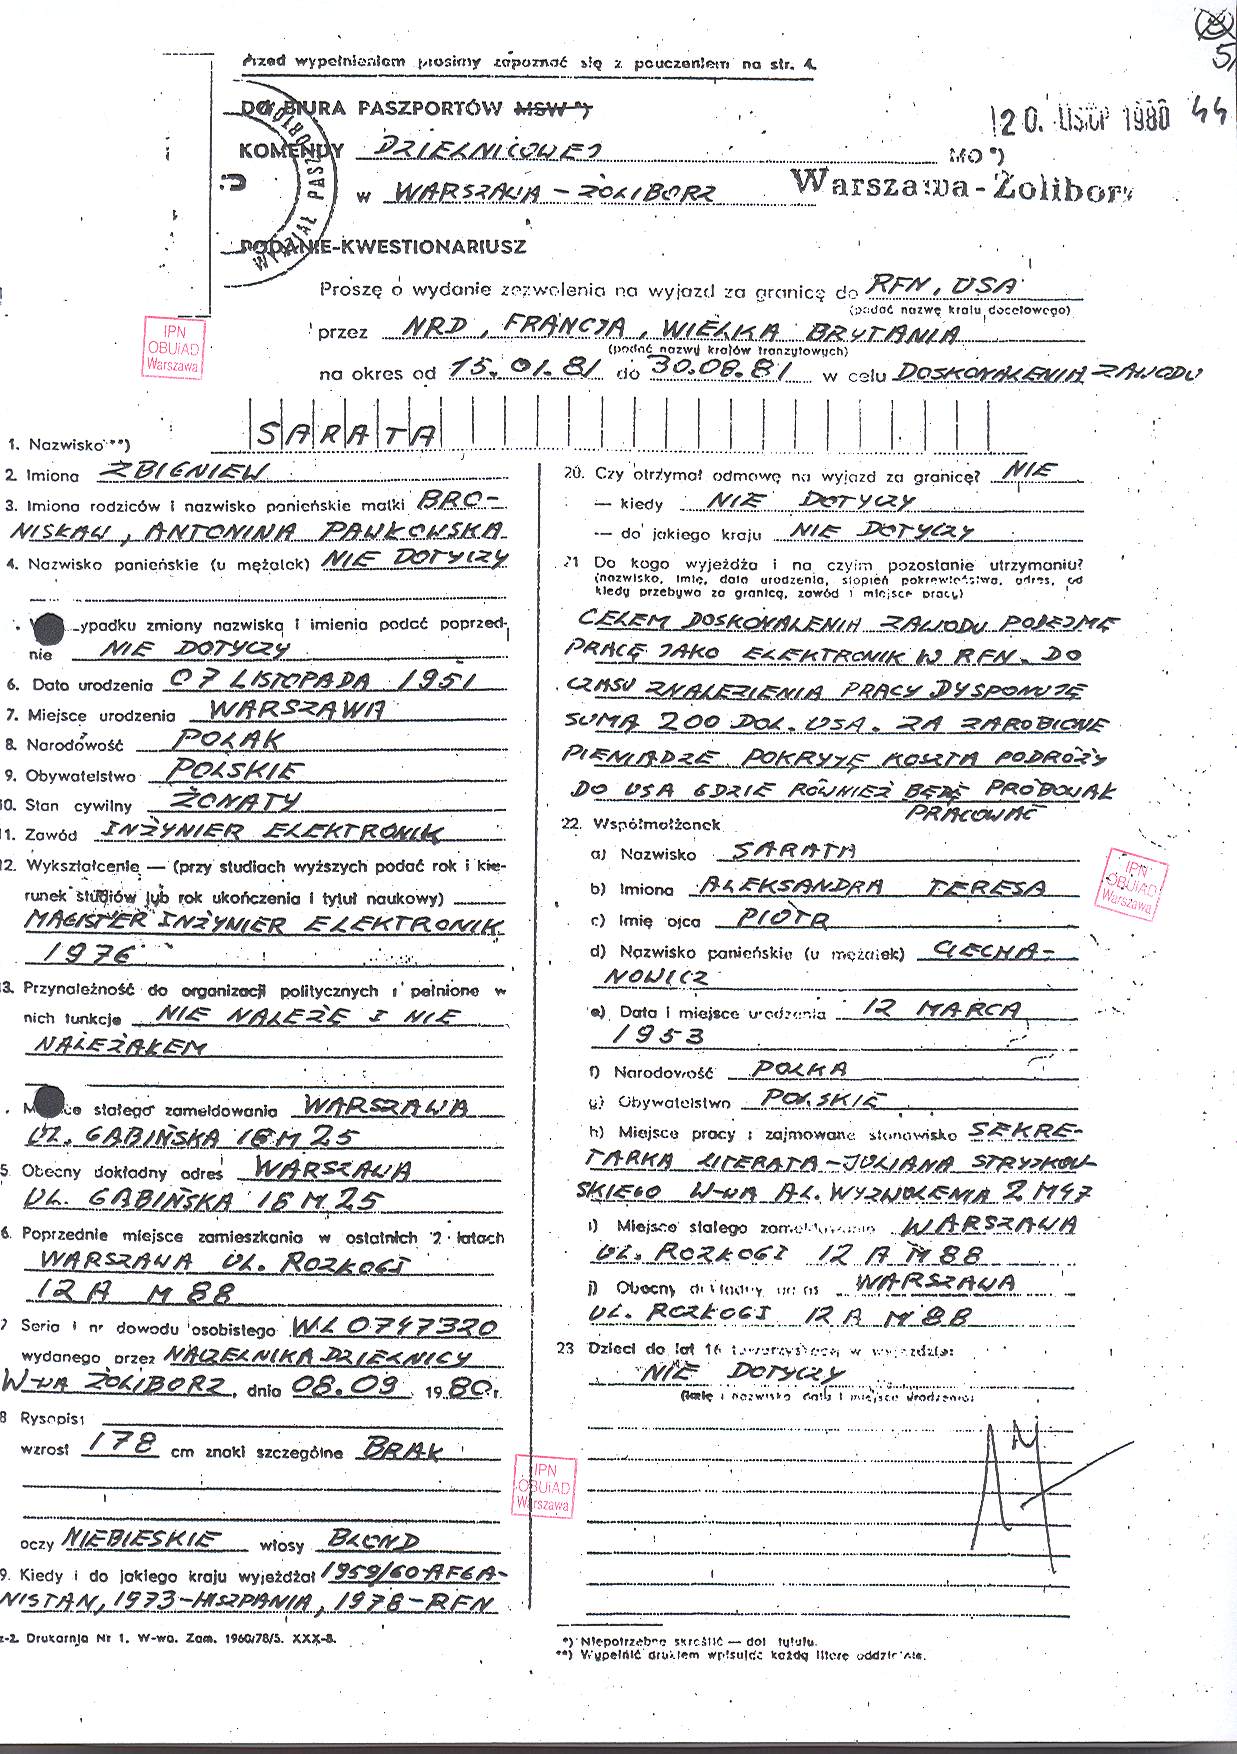 Przed wypełnieniem prosimy zapoznać się z pouczeniem na str. 4.
DO BIURA PASZPORTÓW MSW *)
20. LISTOP 1980 44
KOMENDY DZIELNICOWEJ MO *)
w WARSZAWA - ŻOLIBORZ
Warszawa-Żoliborz
WYDZIAŁ PASZPORTÓW
PODANIE-KWESTIONARIUSZ
Proszę o wydanie zezwolenia na wyjazd za granicę do RFN, USA
(podać nazwę kraju docelowego)
przez NRD, FRANCJA, WIELKA BRYTANIA
(podać nazwy krajów tranzytowych)
na okres od 15.01.81 do 30.08.81 w celu DOSKONALENIA ZAWODU
IPN
OBUiAD
Warszawa
1. Nazwisko **) SARATA
2. Imiona ZBIGNIEW
3. Imiona rodziców i nazwisko panieńskie matki BRO-
NISŁAW, ANTONINA PAWŁOWSKA
4. Nazwisko panieńskie (u mężatek) NIE DOTYCZY
ypadku zmiany nazwiska i imienia podać poprzed-
nie NIE DOTYCZY
6. Data urodzenia 07 LISTOPADA 1951
7. Miejsce urodzenia WARSZAWA
8. Narodowość POLAK
9. Obywatelstwo POLSKIE
10. Stan cywilny ŻONATY
11. Zawód INŻYNIER ELEKTRONIK
12. Wykształcenie — (przy studiach wyższych podać rok i kie-
runek studiów lub rok ukończenia i tytuł naukowy)
MAGISTER INŻYNIER ELEKTRONIK
1976
13. Przynależność do organizacji politycznych i pełnione w
nich funkcje NIE NALEŻĘ I NIE
NALEŻAŁEM
ce stałego zameldowania WARSZAWA
UL. GĄBIŃSKA 16 M 25
5. Obecny dokładny adres WARSZAWA
UL. GĄBIŃSKA 16 M 25
6. Poprzednie miejsce zamieszkania w ostatnich 2 latach
WARSZAWA UL. ROZŁOGI
12 A M 88
7 Seria i nr dowodu osobistego WŁ 0747320
wydanego przez NACZELNIKA DZIELNICY
W-WA ŻOLIBORZ, dnia 08.09 1980 r.
8 Rysopis:
wzrost 178 cm znaki szczególne BRAK
oczy NIEBIESKIE włosy BLOND
9. Kiedy i do jakiego kraju wyjeżdżał 1959/60-AFGA-
NISTAN, 1973-HISZPANIA, 1978-RFN
z-2. Drukarnia Nr 1. W-wa. Zam. 1960/78/S. XXX-8.
20. Czy otrzymał odmowę na wyjazd za granicę? NIE
— kiedy NIE DOTYCZY
— do jakiego kraju NIE DOTYCZY
21 Do kogo wyjeżdża i na czyim pozostanie utrzymaniu?
(nazwisko, imię, data urodzenia, stopień pokrewieństwa, adres, od
kiedy przebywa za granicą, zawód i miejsce pracy)
CELEM DOSKONALENIA ZAWODU PODEJMĘ
PRACĘ JAKO ELEKTRONIK W RFN. DO
CZASU ZNALEZIENIA PRACY DYSPONUJĘ
SUMĄ 200 DOL. USA. ZA ZAROBIONE
PIENIĄDZE POKRYJĘ KOSZTA PODRÓŻY
DO USA GDZIE RÓWNIEŻ BĘDĘ PRÓBOWAŁ
PRACOWAĆ
22. Współmałżonek
a) Nazwisko SARATA
b) Imiona ALEKSANDRA TERESA
c) Imię ojca PIOTR
d) Nazwisko panieńskie (u mężatek) CIECHA-
NOWICZ
e) Data i miejsce urodzenia 12 MARCA
1953
f) Narodowość POLKA
g) Obywatelstwo POLSKIE
h) Miejsce pracy i zajmowane stanowisko SEKRE-
TARKA LITERATA-JULIANA STRYJKOW-
SKIEGO W-WA AL. WYZWOLENIA 2 M 47
i) Miejsce stałego zameldowania WARSZAWA
UL. ROZŁOGI 12 A M 88
j) Obecny dokładny adres WARSZAWA
UL. ROZŁOGI 12 A M 88
23 Dzieci do lat 16 towarzyszące w wyjeździe:
NIE DOTYCZY
(imię i nazwisko data i miejsce urodzenia)
IPN
OBUiAD
Warszawa
IPN
OBUiAD
Warszawa
*) Niepotrzebne skreślić — dot. tytułu.
**) Wypełnić drukiem wpisując każdą literę oddzielnie.